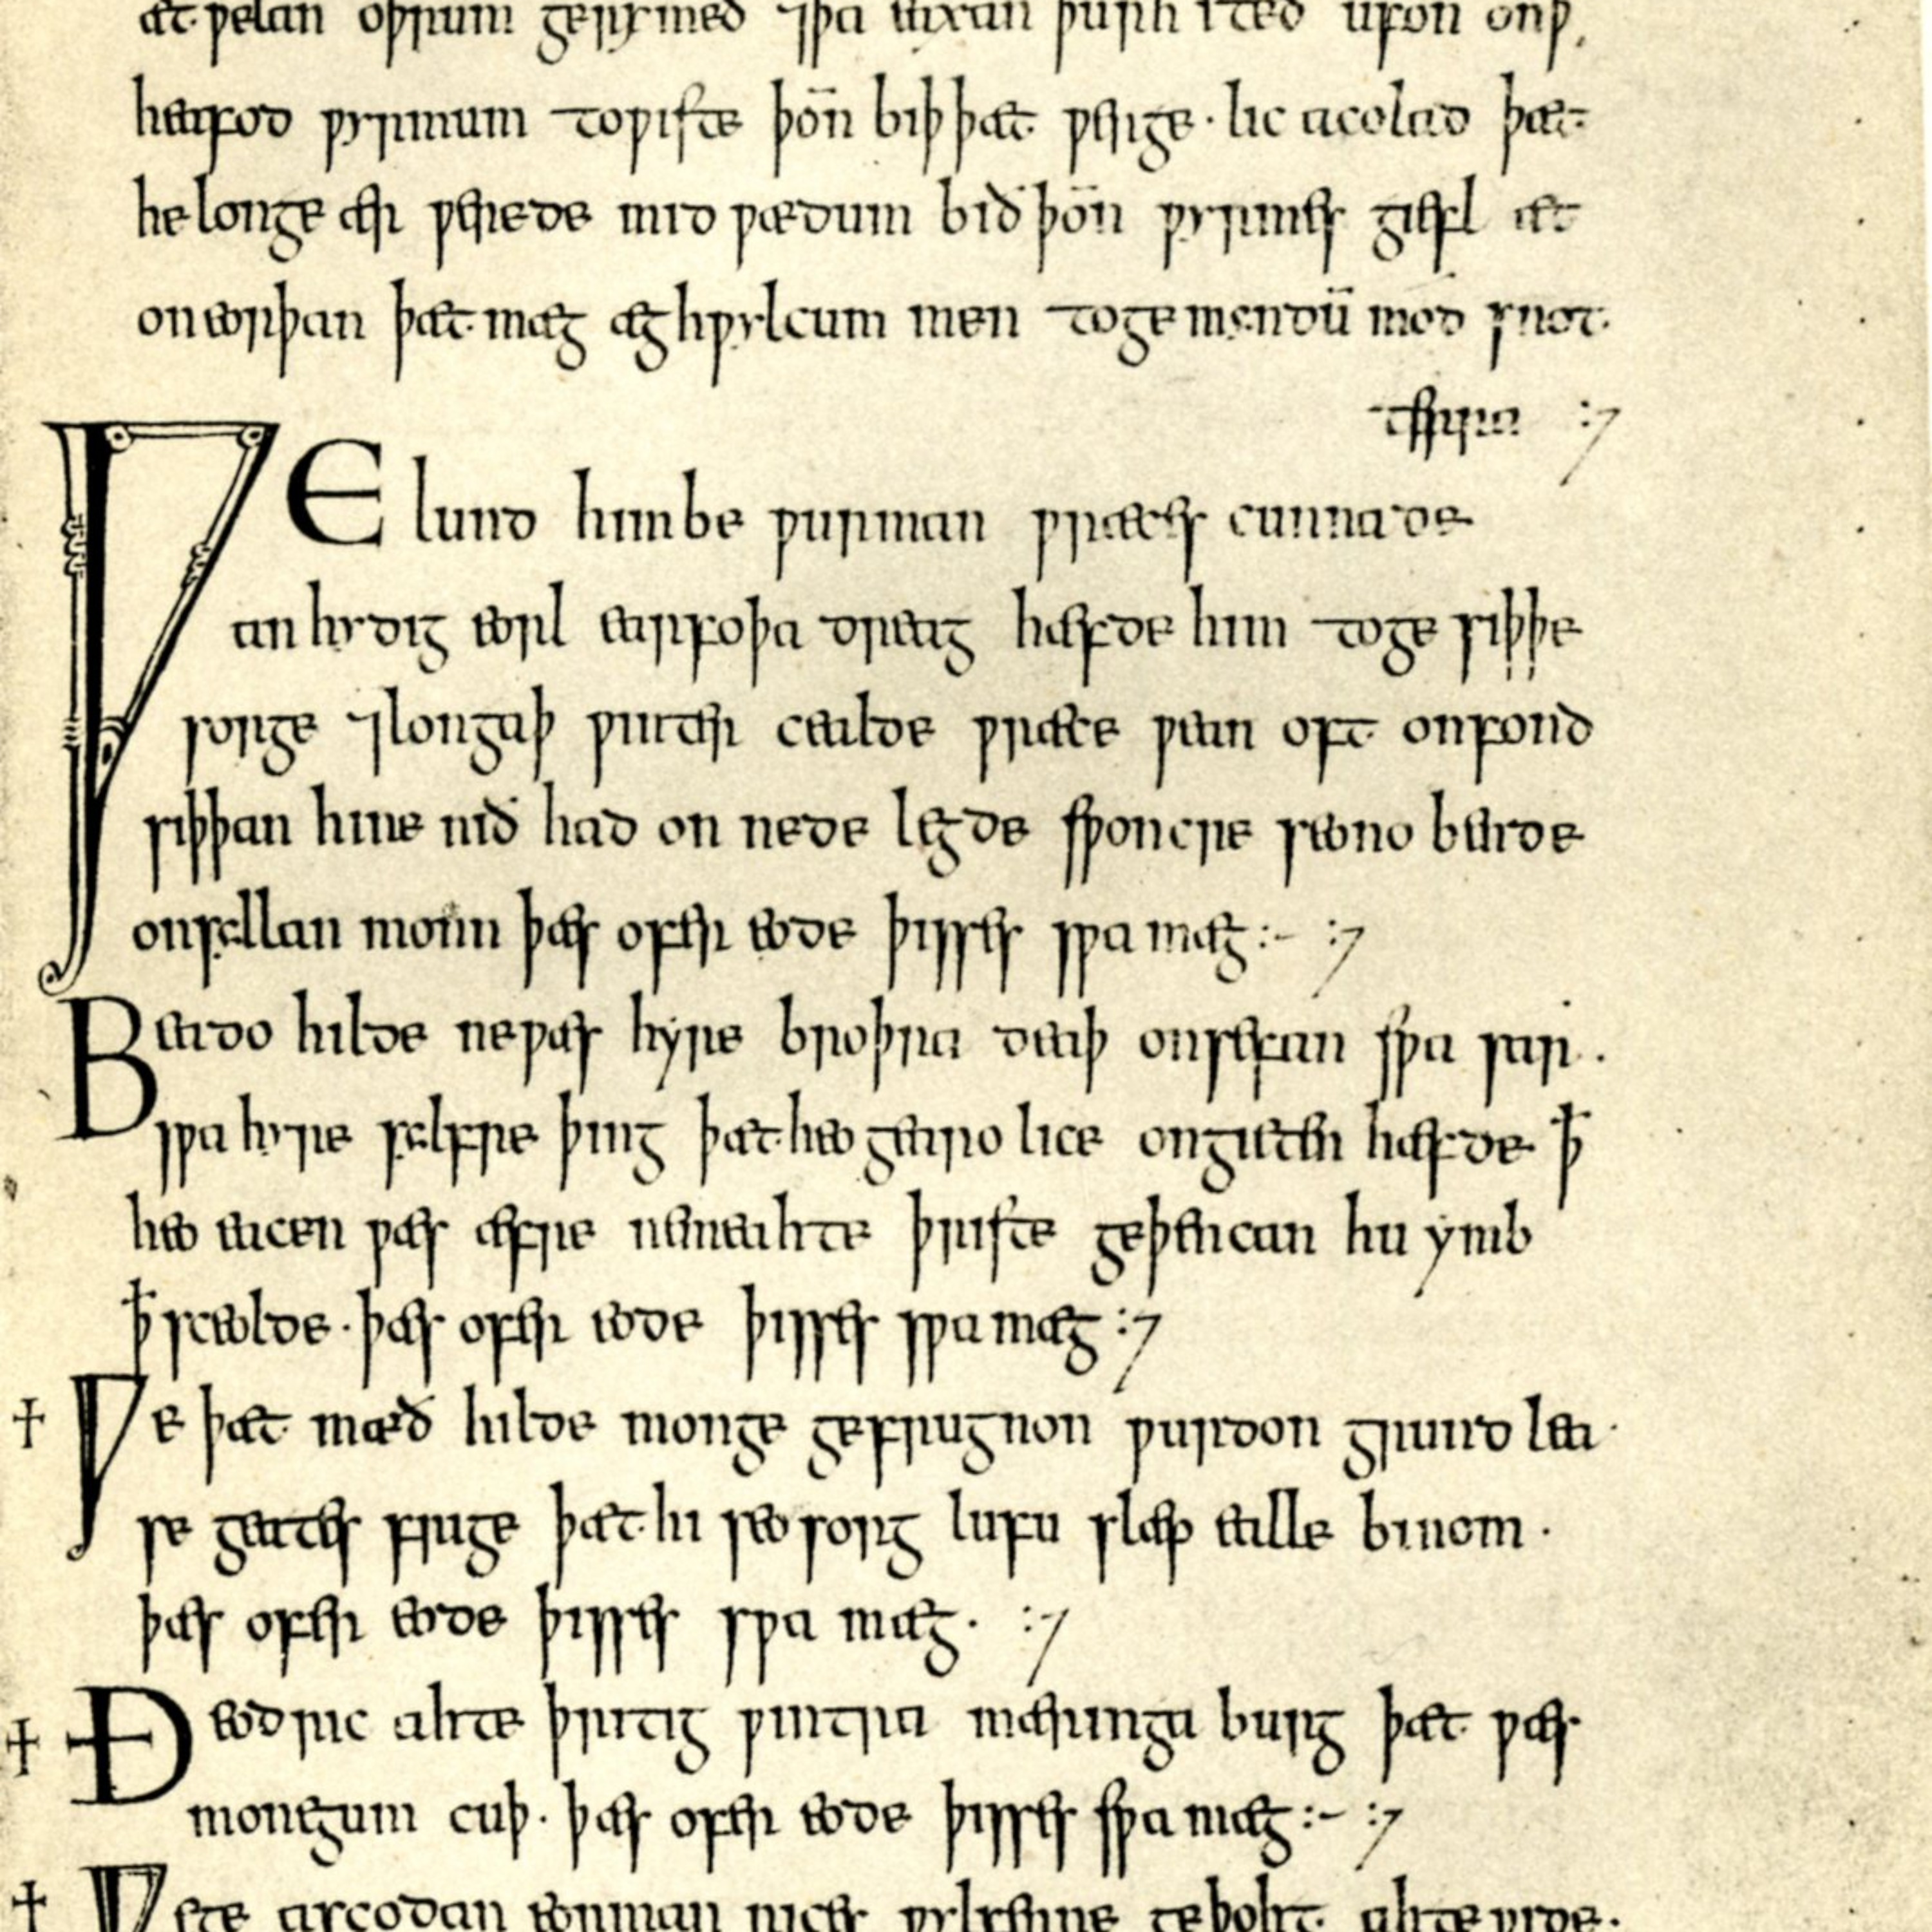 æt ƿelan oþrum gerymed ⁊ ufon onƿ
heafod ƿyrmum toƿiste þoñ biþ þæt ƿerge · lic acolad þæt
he longe ær ƿerede mid ƿædum bið þoñ ƿyrmes giefl æt
on eorþan þæt mæg æghƿylcum men togemyndū mod snot
terra :7
ǷElund him be ƿurman ƿræces cunnade
an hydig eorl earfoþa dreag hæfde him toge siþþe
sorge ⁊ longaþ ƿinter cealde ƿræce ƿean oft onfond
siþþan hine nið had on nede legde sƿoncre seono bende
onsyllan monn þæs ofer eode þisses sƿa mæg :- :7
Beado hilde ne ƿæs hyre broþra deaþ onsefan sƿa sar ·
sƿa hyre sylfre þing þæt heo gearo lice ongieten hæfde ꝥ
heo eacen ƿæs æfre ne meahte þriste geþencan hu ymb
ꝥ sceolde · þæs ofer eode þisses sƿa mæg :7
Ƿe þæt mæð hilde monge gefrugnon ƿurdon grund lea
se geates frige þæt hi seo sorg lufu slæp ealle binom ·
þæs ofer eode þisses sƿa mæg · :7
Ðeodric ahte þritig ƿintra mæringa burg þæt ƿæs
monegum cuþ · þæs ofer eode þisses sƿa mæg :- :7
Ƿe geascodan eormanrices ƿylfenne geþoht ahte ƿide ·